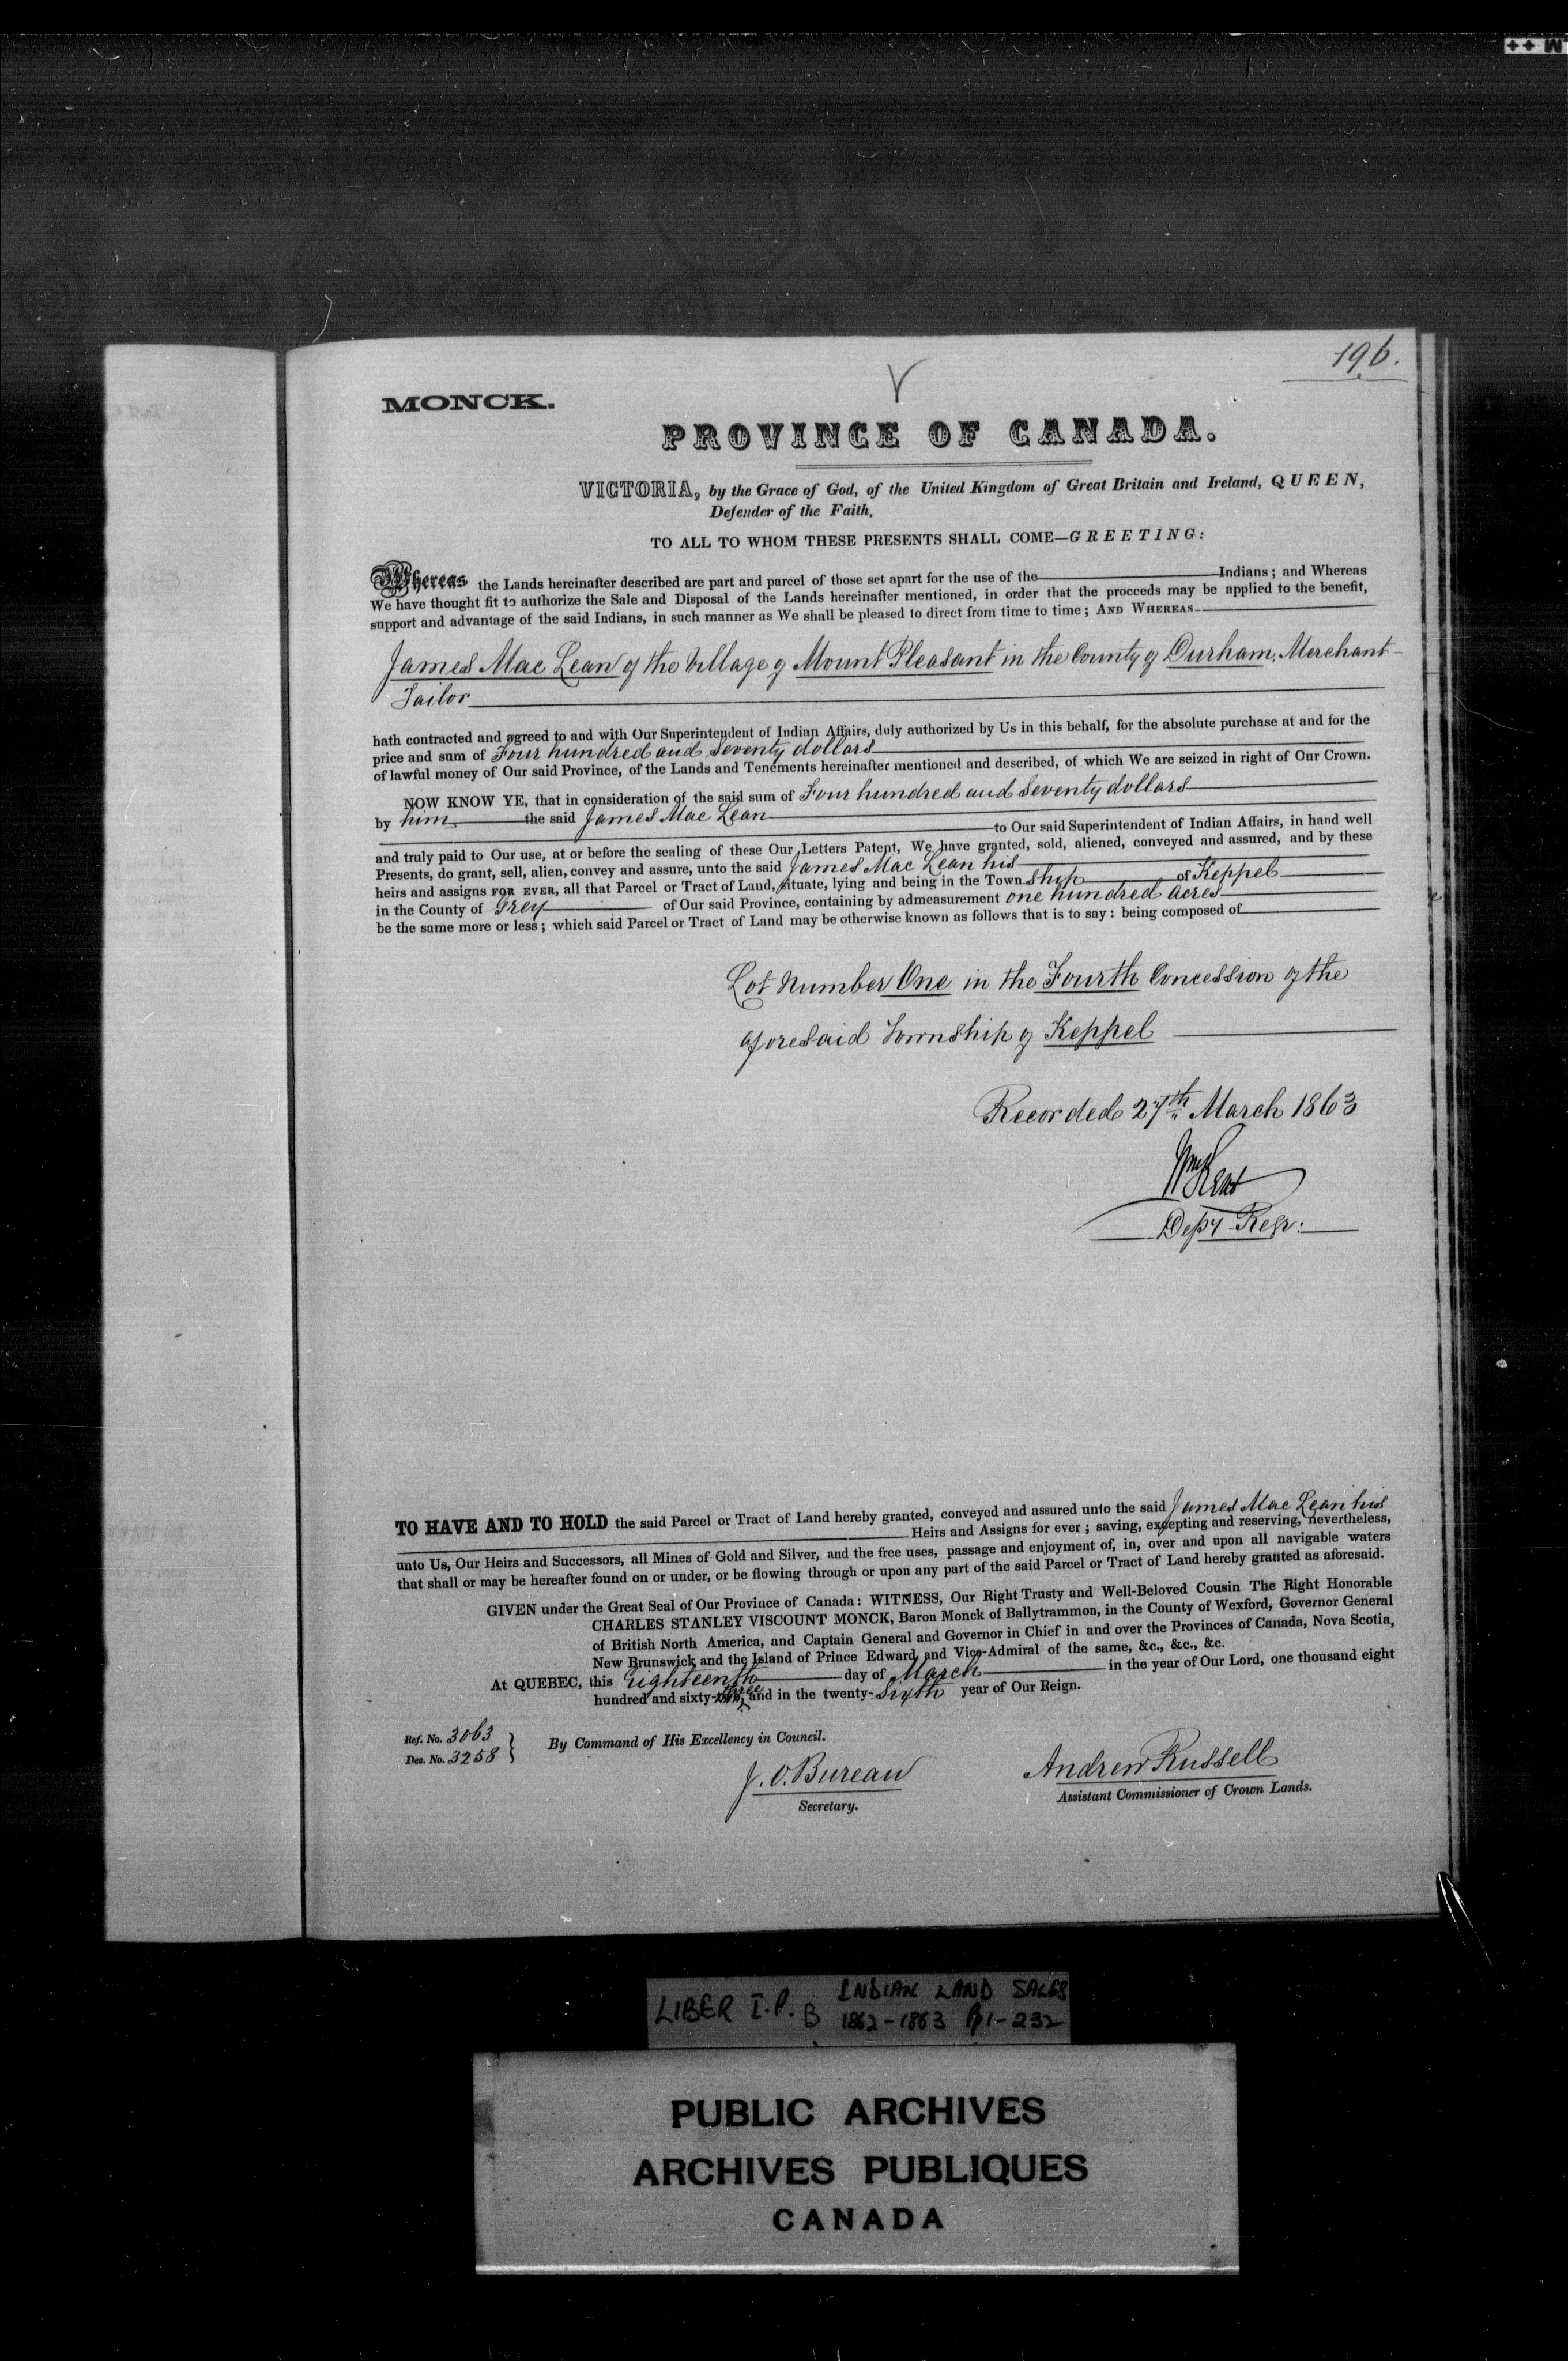 196.
MONCK.
PROVINCE OF CANADA.
VICTORIA, by the Grace of God, of the United Kingdom of Great Britain and Ireland, QUEEN,
Defender of the Faith.
TO ALL TO WHOM THESE PRESENTS SHALL COME—GREETING:
Whereas the Lands hereinafter described are part and parcel of those set apart for the use of the Indians; and Whereas
We have thought fit to authorize the Sale and Disposal of the Lands hereinafter mentioned, in order that the proceeds may be applied to the benefit,
support and advantage of the said Indians, in such manner as We shall be pleased to direct from time to time; AND WHEREAS
James Mac Lean of the Village of Mount Pleasant in the County of Durham, Merchant-
Tailor
hath contracted and agreed to and with Our Superintendent of Indian Affairs, duly authorized by Us in this behalf, for the absolute purchase at and for the
price and sum of Four hundred and seventy dollars
of lawful money of Our said Province, of the Lands and Tenements hereinafter mentioned and described, of which We are seized in right of Our Crown.
NOW KNOW YE, that in consideration of the said sum of Four hundred and seventy dollars
by him the said James Mac Lean
to Our said Superintendent of Indian Affairs, in hand well
and truly paid to Our use, at or before the sealing of these Our Letters Patent, We have granted, sold, aliened, conveyed and assured, and by these
Presents, do grant, sell, alien, convey and assure, unto the said James Mac Lean his
heirs and assigns FOR EVER, all that Parcel or Tract of Land, situate, lying and being in the Township of Keppel
in the County of Grey of Our said Province, containing by admeasurement one hundred acres
be the same more or less; which said Parcel or Tract of Land may be otherwise known as follows that is to say: being composed of
Lot Number One in the Fourth Concession of the
aforesaid Township of Keppel
Recorded 27th March 1863
Wm Kent
Depy Regr.
TO HAVE AND TO HOLD the said Parcel or Tract of Land hereby granted, conveyed and assured unto the said James Mac Lean his
Heirs and Assigns for ever; saving, excepting and reserving, nevertheless,
unto Us, Our Heirs and Successors, all Mines of Gold and Silver, and the free uses, passage and enjoyment of, in, over and upon all navigable waters
that shall or may be hereafter found on or under, or be flowing through or upon any part of the said Parcel or Tract of Land hereby granted as aforesaid.
GIVEN under the Great Seal of Our Province of Canada: WITNESS, Our Right Trusty and Well-Beloved Cousin The Right Honorable
CHARLES STANLEY VISCOUNT MONCK, Baron Monck of Ballytrammon, in the County of Wexford, Governor General
of British North America, and Captain General and Governor in Chief in and over the Provinces of Canada, Nova Scotia,
New Brunswick and the Island of Prince Edward, and Vice-Admiral of the same, &c., &c., &c.
At QUEBEC, this Eighteenth day of March in the year of Our Lord, one thousand eight
hundred and sixty-three, and in the twenty-Sixth year of Our Reign.
Ref. No. 3063
Des. No. 3258
By Command of His Excellency in Council.
J. O. Bureau
Secretary.
Andrew Russell
Assistant Commissioner of Crown Lands.
LIBER I.P. B INDIAN LAND SALES
1862-1863 Pp 1-232
PUBLIC ARCHIVES
ARCHIVES PUBLIQUES
CANADA